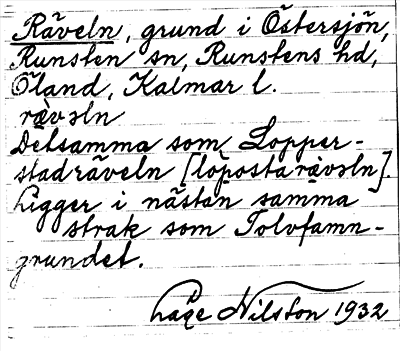 Räveln, grund i Östersjön,
Runsten sn, Runstens hd,
Öland, Kalmar l.
rävəln
Detsamma som Lopper-
stadräveln [lòpostarävəln].
Ligger i nästan samma
strak som Tolvfamn-
grundet.
Åke Nilsson 1932